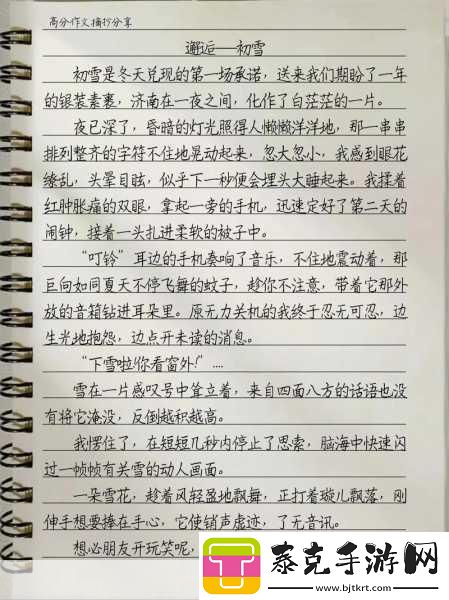 高分作文摘抄分享
邂逅——初雪
初雪是冬天兑现的第一场承诺，送来我们期盼了一年
的银装素裹，济南在一夜之间，化作了白茫茫的一片。
夜已深了，昏暗的灯光照得人懒懒洋洋地，那一串串
排列整齐的字符不住地晃动起来，忽大忽小，我感到眼花
缭乱，头晕目眩，似乎下一秒便会埋头大睡起来。我揉着
红肿胀痛的双眼，拿起一旁的手机，迅速定好了第二天的
闹钟，接着一头扎进柔软的被子中。
“叮铃”耳边的手机奏响了音乐，不住地震动着，那
巨向如同夏天不停飞舞的蚊子，趁你不注意，带着它那外
放的音箱钻进耳朵里。原无力关机的我终于忍无可忍，边
生光地抱怨，边点开未读的消息。
“下雪啦！你看窗外！”....
雪在一片感叹号中耸立着，来自四面八方的话语也没
有将它淹没，反倒越积越高。
我愣住了，在短短几秒内停止了思索，脑海中快速闪
过一帧帧有关雪的动人画面。
一朵雪花，趁着风轻盈地飘舞，正打着璇儿飘落，刚
伸手想要捧在手心，它使销声虚迹，了无音讯。
想必朋友开玩笑呢，
泰克手游网
www.bjtkrt.com